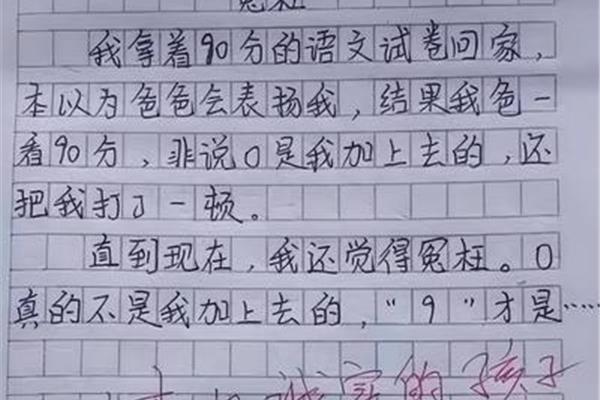 冤枉
我拿着90分的语文试卷回家，
本以为色色会表扬我，结果我色一
看90分，非说0是我加上去的，还
把我打了一顿。
直到现在，我还觉得冤枉。0
真的不是我加上去的，“9”才是……
诚实的孩子